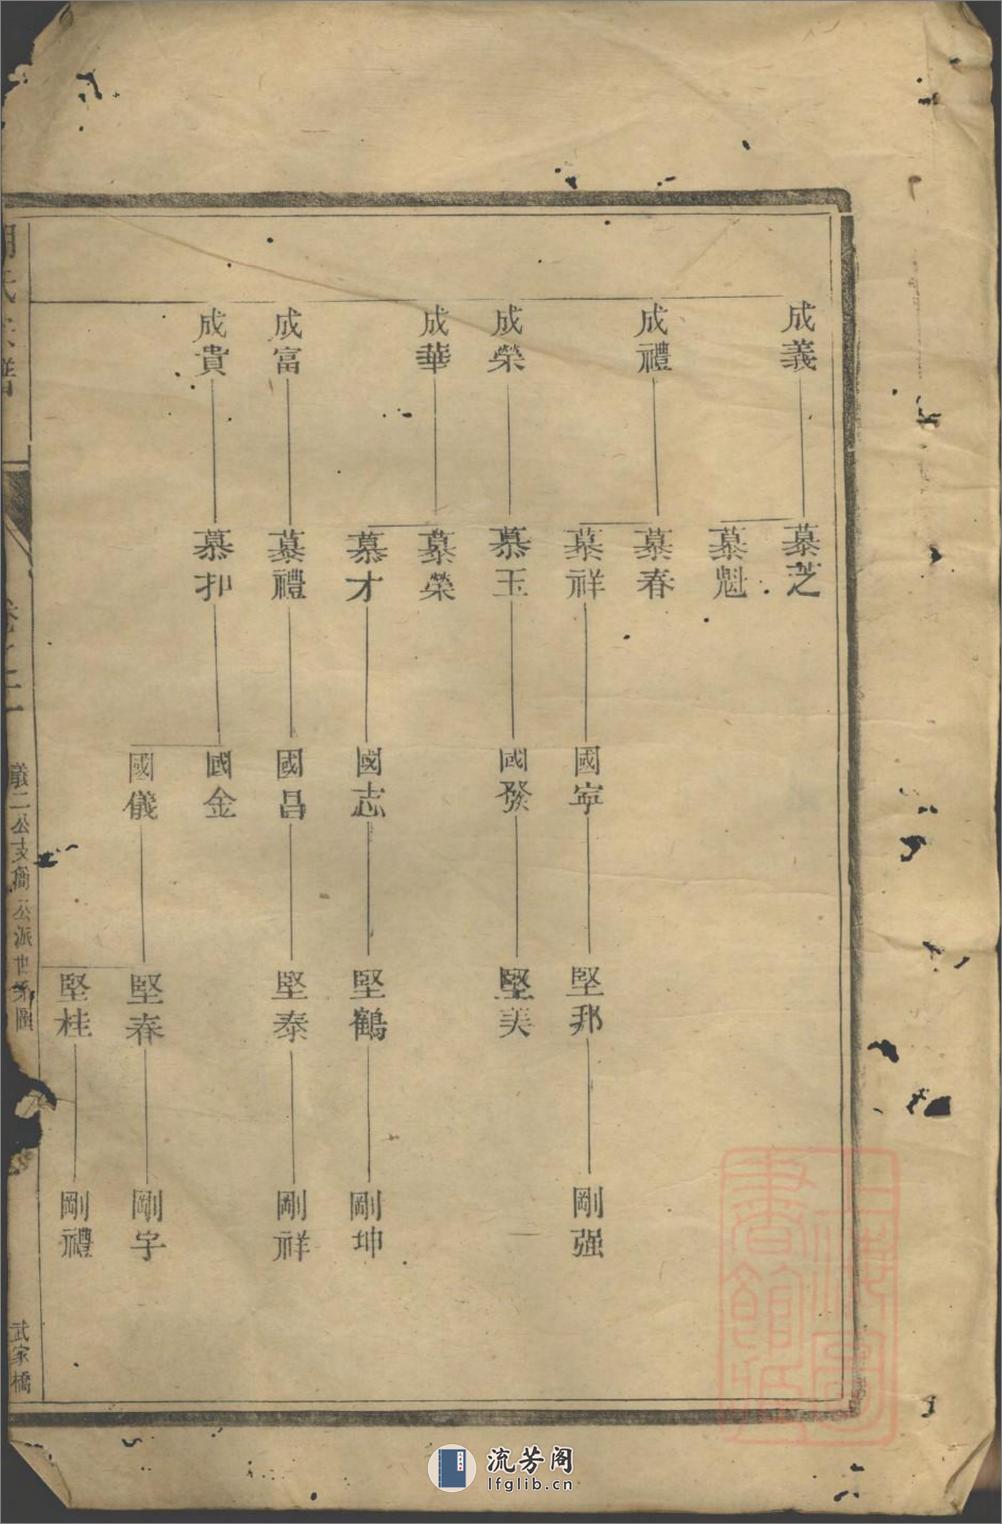 成義
成禮
成榮
成華
成富
成貴
慕芝
慕魁
慕春
慕祥
慕玉
慕榮
慕才
慕禮
慕扣
國寧
國發
國志
國昌
國金
國儀
堅邦
堅美
堅鶴
堅泰
堅春
堅桂
剛强
剛坤
剛祥
剛字
剛禮
氏宗譜
卷之二
儀二公支簡公派世系圖
武家橋
上海圖書館藏
流芳阁
lfglib.cn